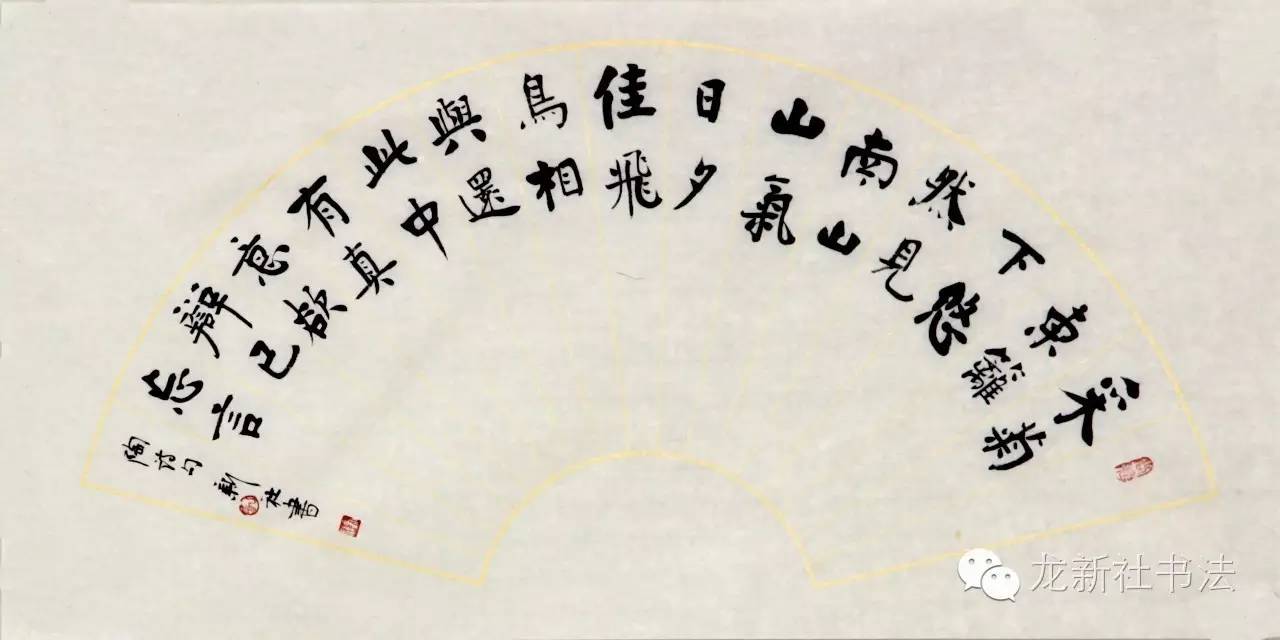 采菊
東籬
下悠
然見
南山
山氣
日夕
佳飛
鳥相
與還
此中
有真
意欲
辯已
忘言
陶诗句新社書
龙新社书法